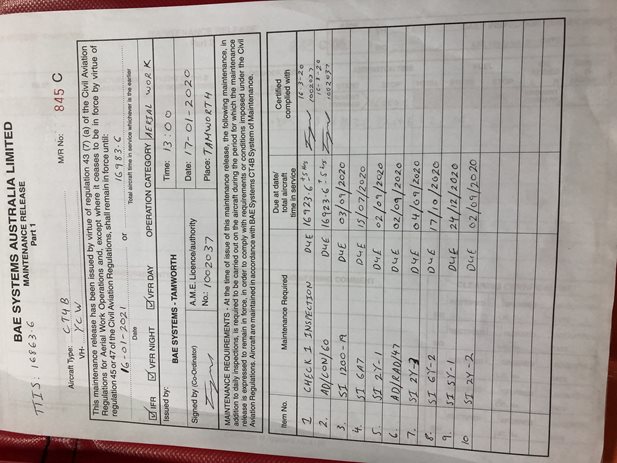 TTIS: 16863.6
BAE SYSTEMS AUSTRALIA LIMITED
MAINTENANCE RELEASE
Part 1
M/R No: 845 C
Aircraft Type: CT4B
VH- YCW
This maintenance release has been issued by virtue of regulation 43 (7) (a) of the Civil Aviation
Regulations for Aerial Work Operations and, except where it ceases to be in force by virtue of
regulation 45 or 47 of the Civil Aviation Regulations, shall remain in force until:
16-01-2021 or 16983.6
Date Total aircraft time in service whichever is the earlier
☑ IFR ☑ VFR NIGHT ☑ VFR DAY OPERATION CATEGORY AERIAL WORK
Issued by: BAE SYSTEMS - TAMWORTH Time: 13:00
Signed by (Co-Ordinator) A.M.E. Licence/authority Date: 17-01-2020
No.: 1002037 Place: TAMWORTH
MAINTENANCE REQUIREMENTS - At the time of issue of this maintenance release, the following maintenance, in
addition to daily inspections, is required to be carried out on the aircraft during the period for which the maintenance
release is expressed to remain in force, in order to comply with requirements or conditions imposed under the Civil
Aviation Regulations. Aircraft are maintained in accordance with BAE Systems CT4B System of Maintenance.
Item No. Maintenance Required Due at date/ total aircraft time in service Certified complied with
1. CHECK 1 INSPECTION DUE 16923.6 16-3-20 1002037
2. AD/CON/60 DUE 16923.6 16-3-20 1002037
3. SI 1200-19 DUE 03/09/2020
4. SI 6A7 DUE 15/07/2020
5. SI 2Y-1 DUE 02/09/2020
6. AD/RAD/47 DUE 02/09/2020
7. SI 2Y-3 DUE 04/09/2020
8. SI 6Y-2 DUE 17/10/2020
9. SI 5Y-1 DUE 24/12/2020
10 SI 2Y-2 DUE 02/09/2020